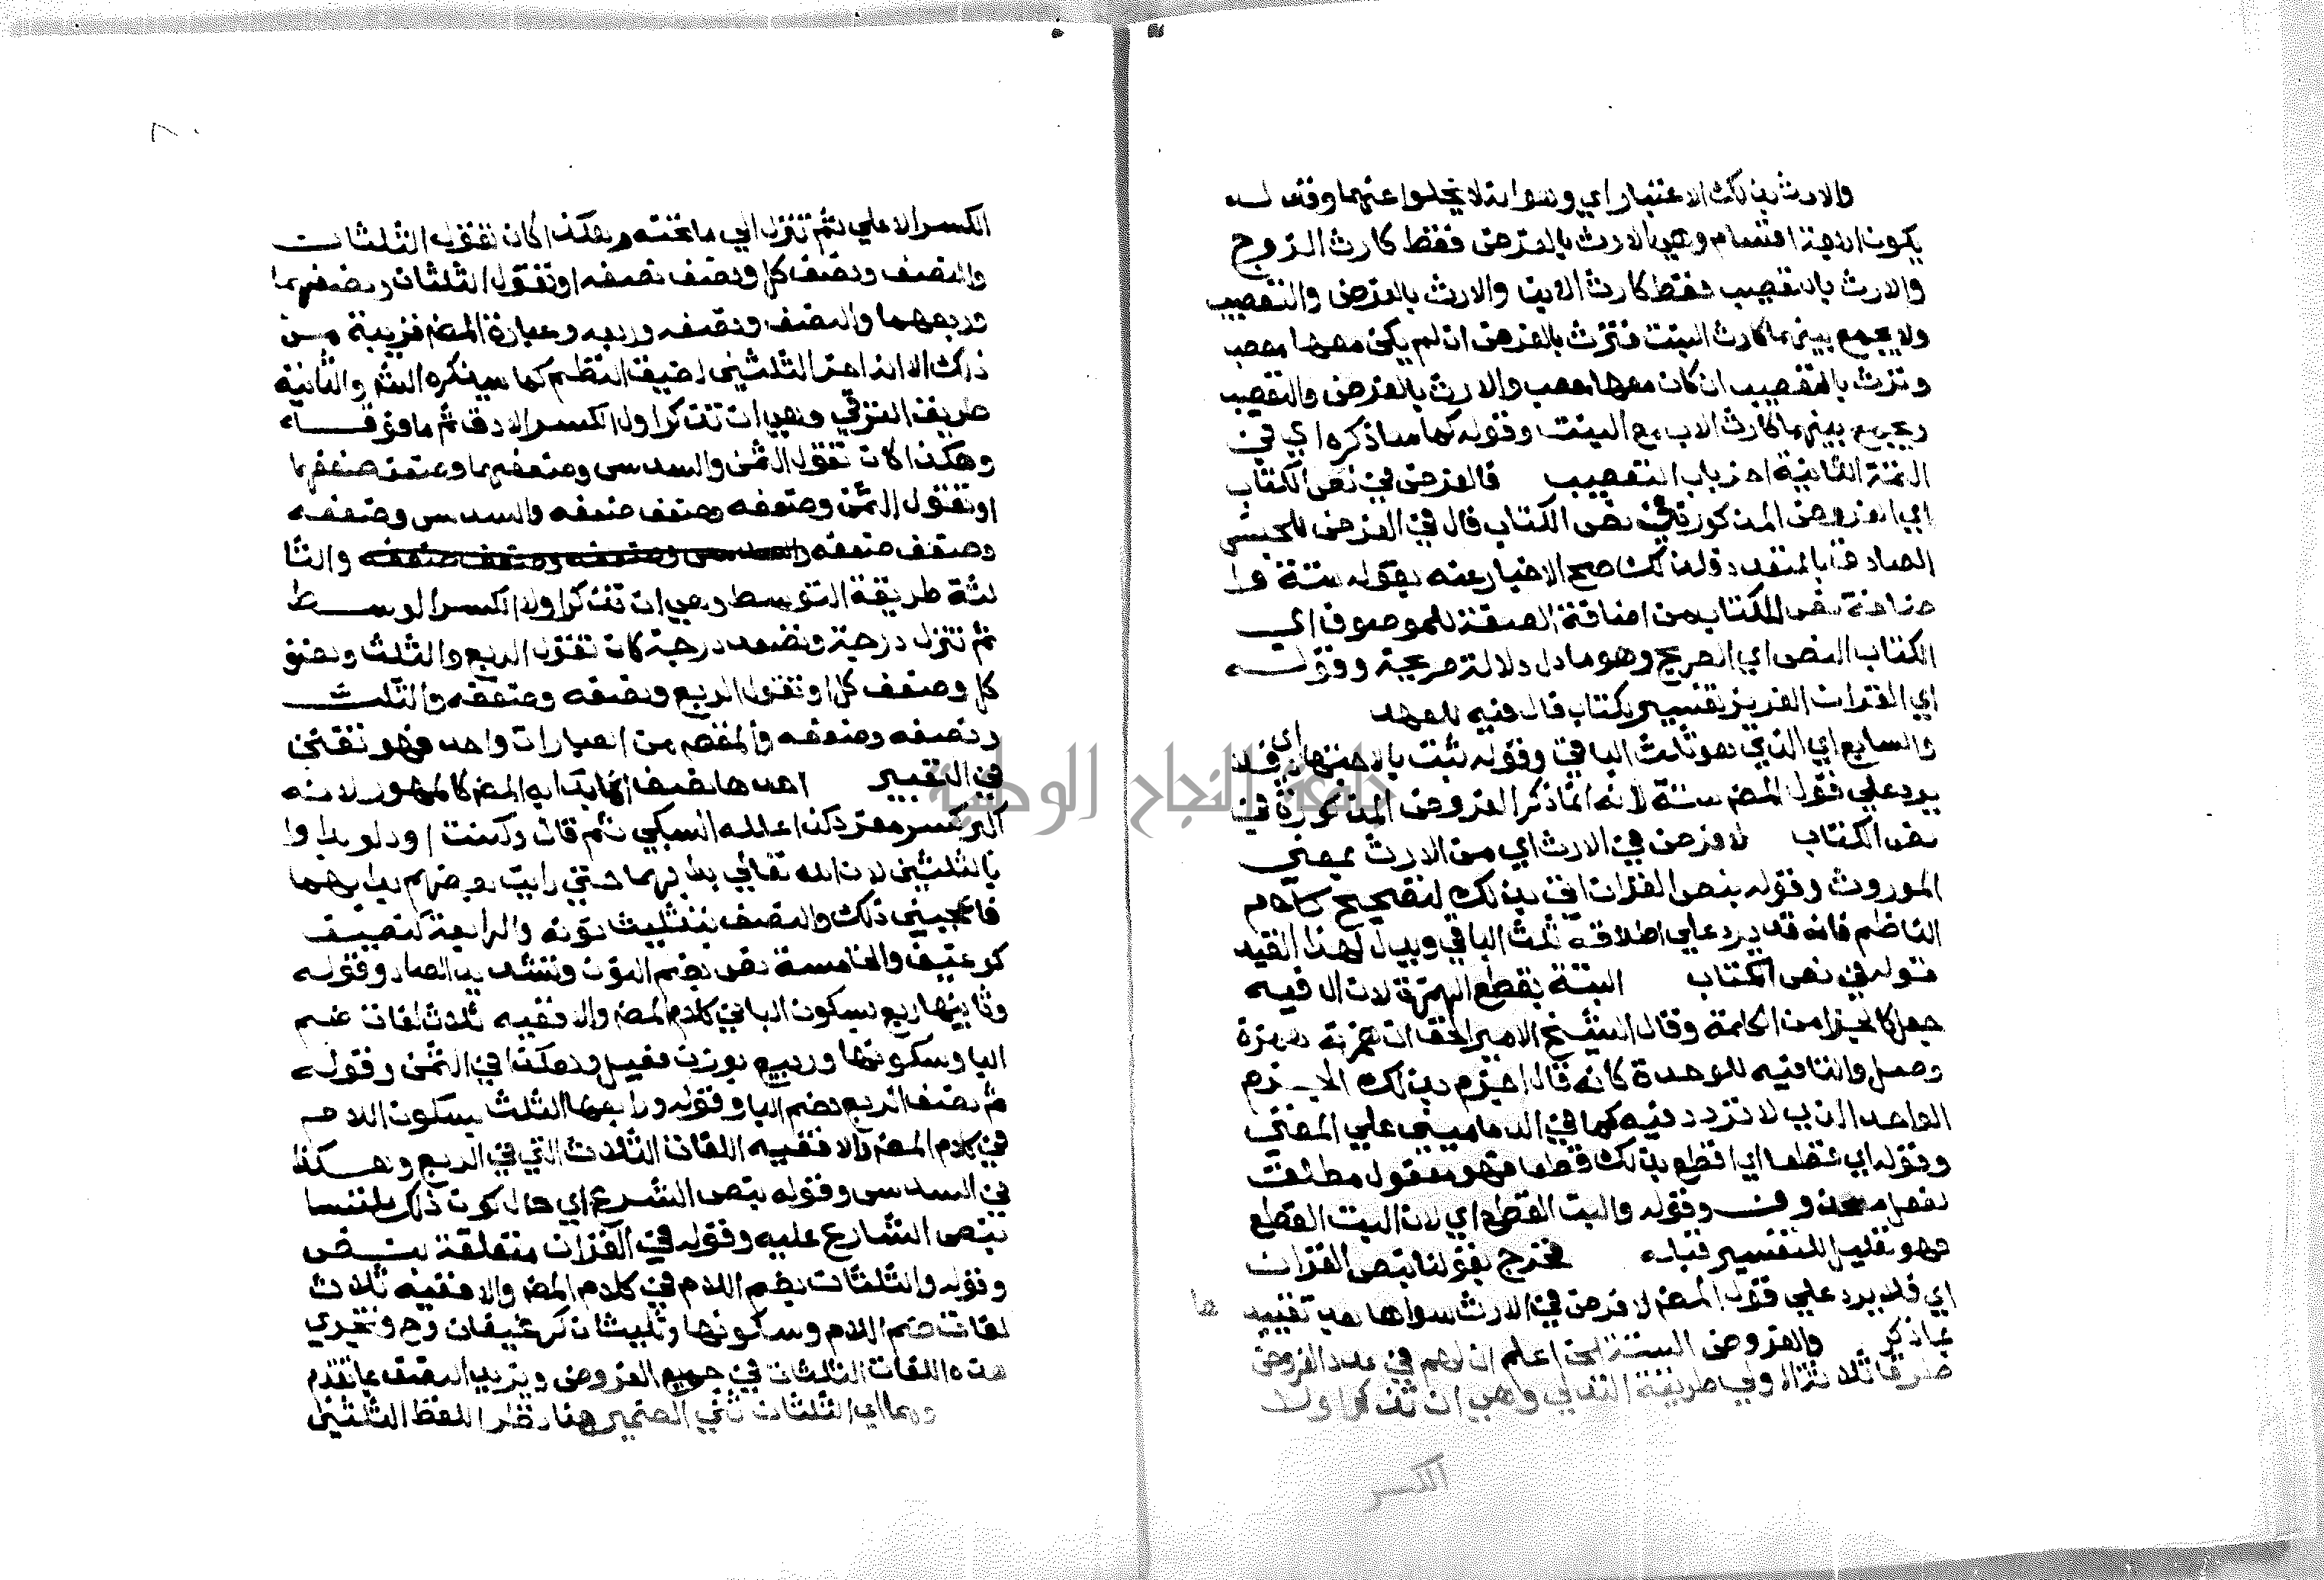 والارث بذلك الاعتبار اي وسواية لا يخلوا عنهما وقوله
يكون اربعة اقسام وهي الارث بالفرض فقط كارث الزوج
والارث بالتعصيب فقط كارث الابن والارث بالفرض والتعصيب
ولا يجمع بينهما كارث البنت فترث بالفرض ان لم يكن معها معصب
وترث بالتعصيب ان كان معها معصب والارث بالفرض والتعصيب
ويجمع بينهما كارث الاب مع البنت وقوله كما سيذكره اي في
التتمة الثانية اخر باب التعصيب فالفرض في نص الكتاب
اي الفروض المذكورة في نص الكتاب فال في الفرض للجنس
الصادق بالمتعدد ولذلك صح الاخبار عنه بقوله ستة وا
ضافة نص للكتاب من اضافة الصفة للموصوف اي
الكتاب النص اي الصريح وهو ما دل دلالة صريحة وقوله
اي القران العزيز تفسير لكتاب فال فيه للعهد
والسابع اي الذي هو ثلث الباقي وقوله ثبت بالاجتهاد اي فلا
يرد علي قول المص ستة لانه انما ذكر الفروض المذكورة في
نص الكتاب لا فرض في الارث اي من الارث بمعني
الموروث وقوله بنص القران اتي بذلك لتصحيح كلام
الناظم فانه قد يرد علي اطلاقه ثلث الباقي ويدل لهذا القيد
قوله في نص الكتاب البتة بقطع الهمزة لان ال فيه
جعل كالجزء من الكلمة وقال الشيخ الامير الحق ان همزته همزة
وصل والتا فيه للوحدة كانه قال اجزم بذلك الجزم
الواحد الذي لا تردد فيه كما في الدماميني علي المغني
وقوله اي قطعا اي اقطع بذلك قطعا فهو مفعول مطلق
لفعل محذوف وقوله والبت القطع اي لان البت القطع
فهو تعليل للتفسير قبله فخرج بقولنا بنص القران
اي فلا يرد علي قول المص لا فرض في الارث سواها بعد تقييده
بما ذكر والفروض الستة الخ اعلم ان لهم في عدد الفروض
طرقا ثلاثا الاولي طريقة التدلي وهي ان تذكر اولا
الكسر
الكسر الاعلي ثم تنزل الي ما تحته وهكذا كان تقول الثلثان
والنصف ونصف كل ونصف نصفه او تقول الثلثان ونصفهما
وربعهما والنصف ونصفه وربعه وعبارة المص قريبة من
ذلك الا انه اخر الثلثين لضيق النظم كما سيذكره الش والثانية
طريق الترقي وهي ان تذكر اولا الكسر الادق ثم ما فوقه
وهكذا كان تقول الثمن والسدس وضعفهما وضعف ضعفهما
او تقول الثمن وضعفه وضعف ضعفه والسدس وضعفه
وضعف ضعفه والثا
لثة طريقة التوسط وهي ان تذكر اولا الكسر الوسط
ثم تنزل درجة وتصعد درجة كان تقول الربع والثلث ونصف
كل وضعف كل او تقول الربع ونصفه وضعفه والثلث
ونصفه وضعفه والمقصد من العبارات واحد فهو تفنن
في التعبير احدها نصف انما بدا به المص كالجمهور لانه
اكبر كسر مفرد كذا علله السبكي ثم قال وكنت اود لو بداوا
بالثلثين لان الله تعالي بدا بهما حتي رايت بعضهم بدا بهما
فاعجبني ذلك والنصف بتثليث نونه والرابعة كنصيف
كرغيف والخامسة نص بضم النون وتشديد الصاد وقوله
وثانيها ربع بسكون الباء في كلام المص والا ففيه ثلاث لغات ضم
البا وسكونها وربيع بوزن فعيل وهكذا في الثمن وقوله
ثم نصف الربع بضم البا وقوله ورابعها الثلث بسكون اللام
في كلام المص والا ففيه اللغات الثلاث التي في الربع وهكذا
في السدس وقوله بنص الشرع اي حال كون ذلك ملتبسا
بنص الشارع عليه وقوله في القران متعلقة بنص
وقوله والثلثان بضم اللام في كلام المص والا ففيه ثلاث
لغات ضم اللام وسكونها وثليثان كرغيفان وح وتجري
هذه اللغات الثلثان في جميع الفروض ويزيد النصف بما تقدم
وهما اي الثلثان ثني الضمير هنا نظرا للفظ الثلثين